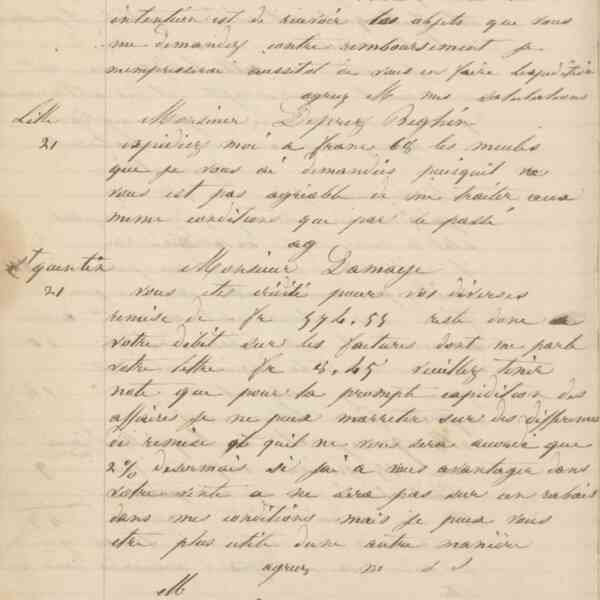 intention est de recevoir les objets que vous
me demandez contre remboursement je
m'empresserai aussitot de vous en faire l'expédition
agreez M mes salutations
Lille Monsieur Deprez Beghin
21 expediez moi a franc 68 les meules
que je vous ai demandées puisquil ne
vous est pas agréable de me traiter aux
meme conditions que par le passé
ag
St quentin Monsieur Damaye
21 vous ete crédité pour vos diverses
remise de fr 574.55 reste donc a
votre debit sur les factures dont me parle
votre lettre fr 3.45 veuillez tenir
note que pour la prompte expedition des
affaires je ne peux marreter sur des differences
de remise quil ne vous sera accordé que
2% desormais si jai a vous avantager dans
votre vente a ne sera pas sur un rabais
dans mes conditions mais je peux vous
etre plus utile dune autre manière
agreez m s s
M